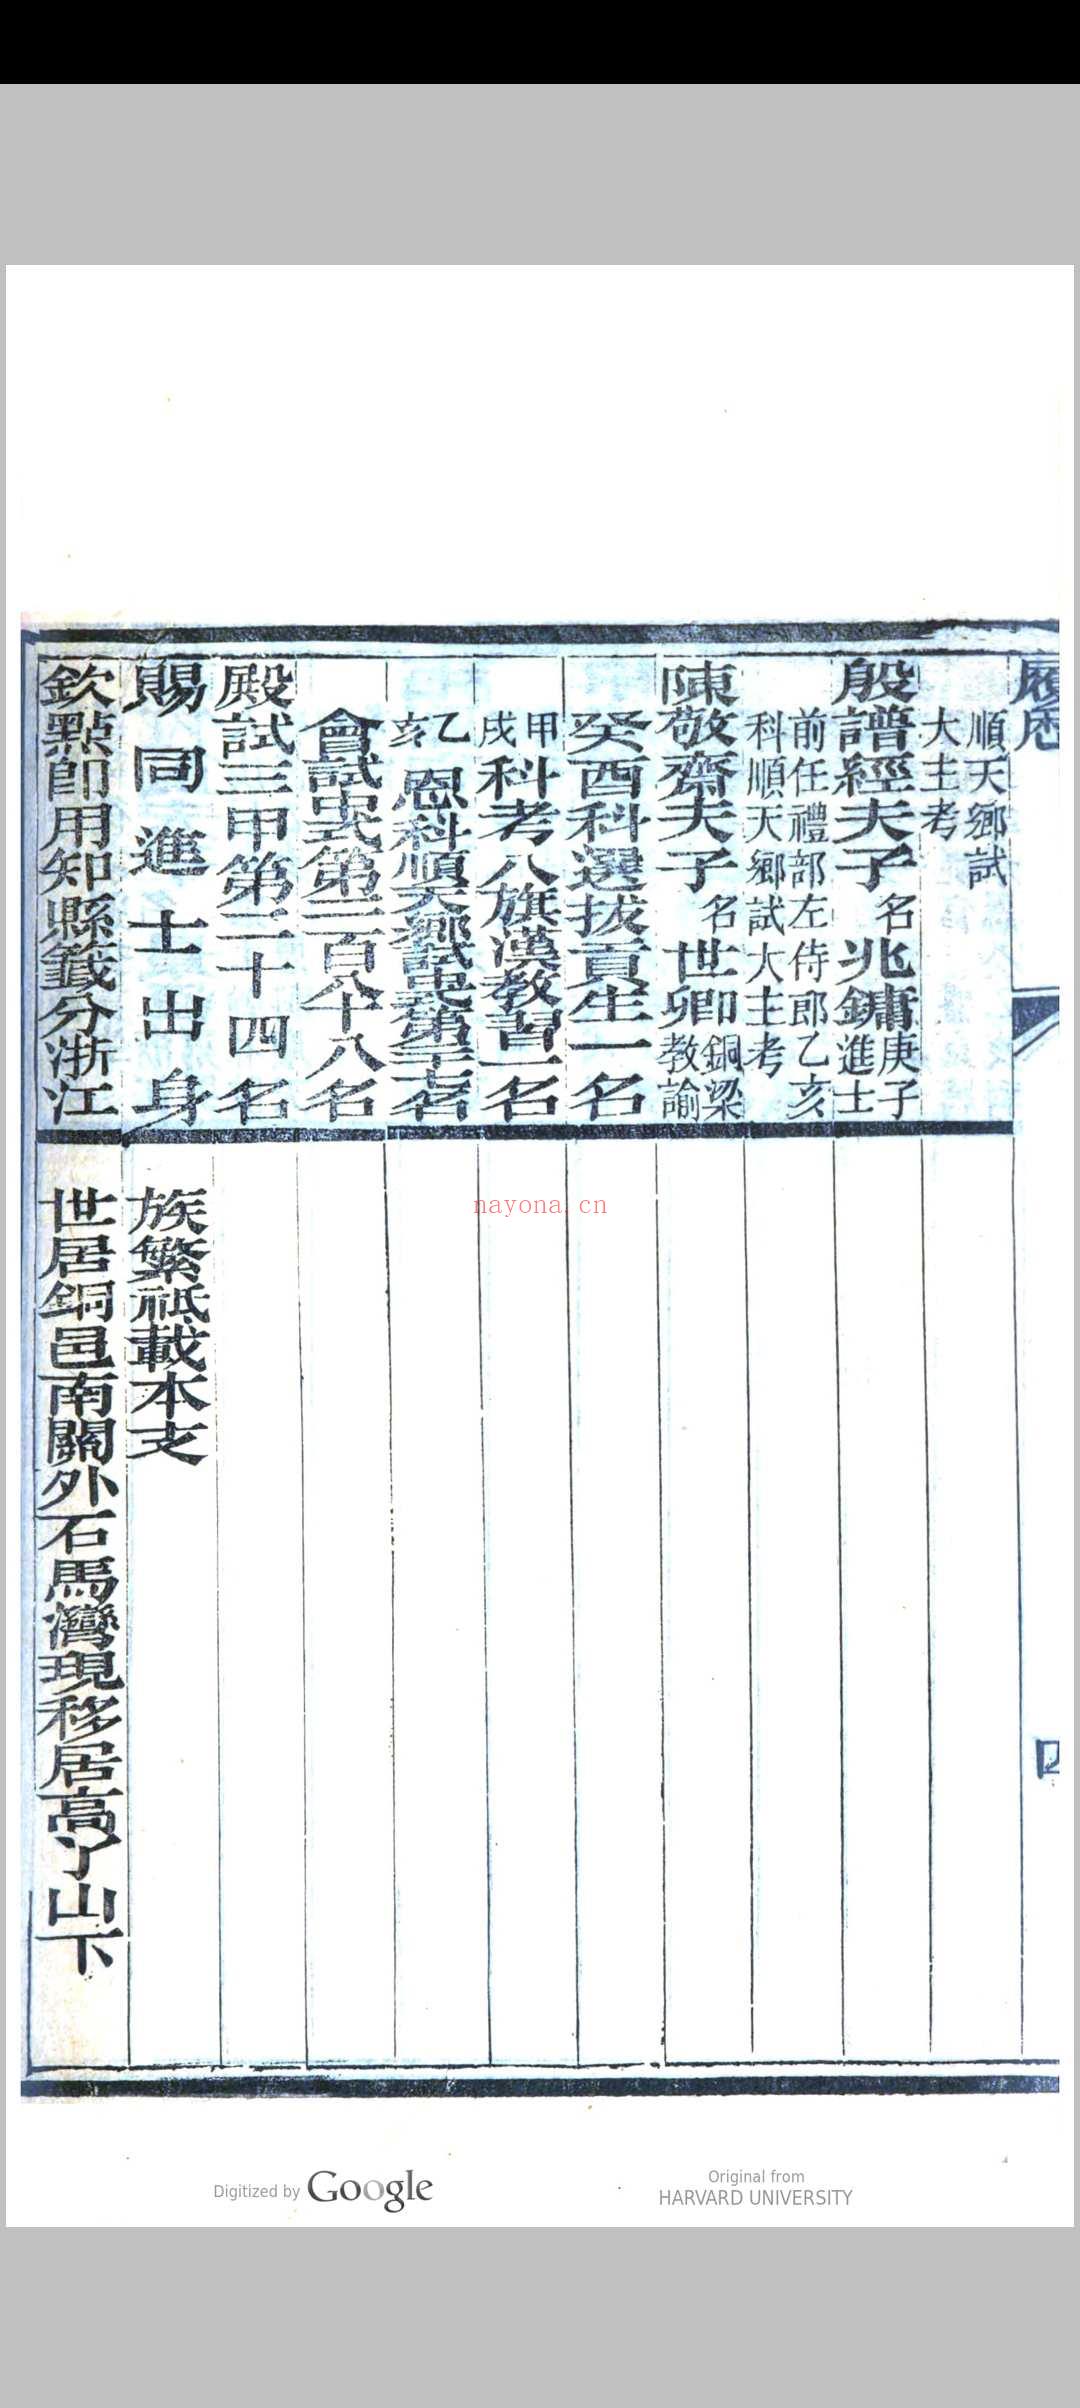 履歷
四
順天鄉試
大主考
殷譜經夫子名兆鏞庚子進士
前任禮部左侍郎乙亥
科順天鄉試大主考
陳敬齋夫子名世卿銅梁教諭
癸酉科選拔貢生一名
甲戌科考八旗漢教習一名
乙亥恩科順天鄉試中式第
會試中式第二百八十八名
殿試三甲第二十四名
賜同進士出身
欽點即用知縣籤分浙江
族繁祇載本支
世居銅邑南關外石馬灣現移居高了山下
nayona.cn
Digitized by Google
Original from
HARVARD UNIVERSITY